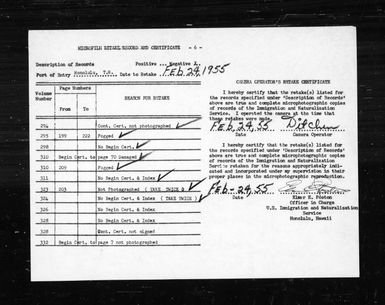 MICROFILM RETAKE RECORD AND CERTIFICATE - 6 -
Description of Records Positive Negative X
Port of Entry Honolulu, T.H. Date to Retake FEB 24, 1955
Volume Number
Page Numbers
From To
REASON FOR RETAKE
294 Cont. Cert. not photographed
295 199 222 Fogged
298 No Begin Cert.
310 Begin Cert. to page 70 Damaged
310 209 Fogged
311 No Begin Cert. & Index
323 203 Not Photographed ( TAKE TWICE )
324 No Begin Cert. & Index ( TAKE TWICE )
326 No Begin Cert. & Index
328 No Begin Cert. & Index
328 Cont. Cert. not signed
332 Begin Cert. to page 7 not photographed
CAMERA OPERATOR'S RETAKE CERTIFICATE
I hereby certify that the retake(s) listed for
the records specified under "Description of Records"
above are true and complete microphotographic copies
of records of the Immigration and Naturalization
Service. I operated the camera at the time that
these retakes were made.
FEB 24, 55
Date Camera Operator
I hereby certify that the retake(s) listed for
the records specified under "Description of Records"
above are true and complete microphotographic copies
of the records of the Immigration and Naturalization
Service retaken for the reasons appropriately indi-
cated and incorporated under my supervision in their
proper places in the microphotographic reproduction.
FEB-24, 55
Date
Elmer E. Poston
Officer in Charge
U.S. Immigration and Naturalization
Service
Honolulu, Hawaii